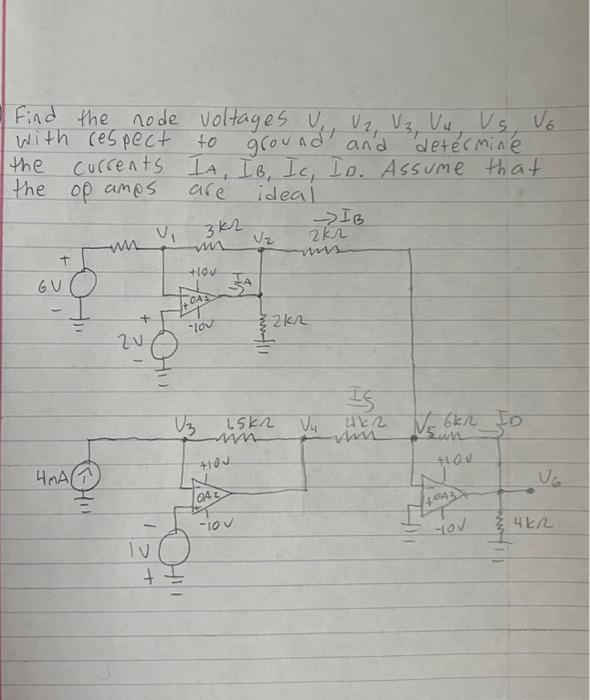 Find the node voltages V1, V2, V3, V4, V5, V6
with respect to ground and determine
the currents IA, IB, IC, ID. Assume that
the op amps are ideal
→IB
V1 3kΩ V2 2kΩ
+
6V
-
+10V IA
- OA1
+
-10V
2kΩ
+
2V
-
IC
V3 1.5kΩ V4 4kΩ V5 6kΩ ID
4mA
+10V
- OA2
+
-10V
+10V
- OA3
+
-10V
V6
4kΩ
-
1V
+